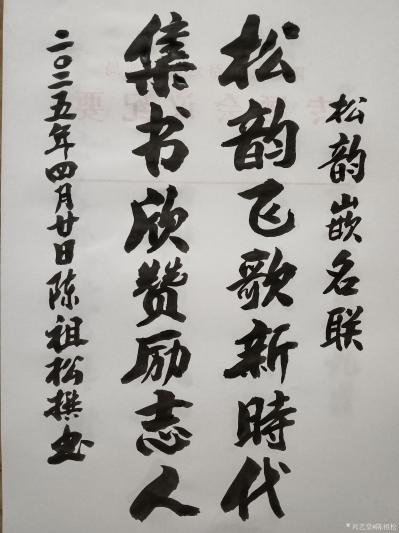 松韵嵌名联
松韵飞歌新時代
集书欣赞励志人
二〇二五年四月廿日陈祖松撰书